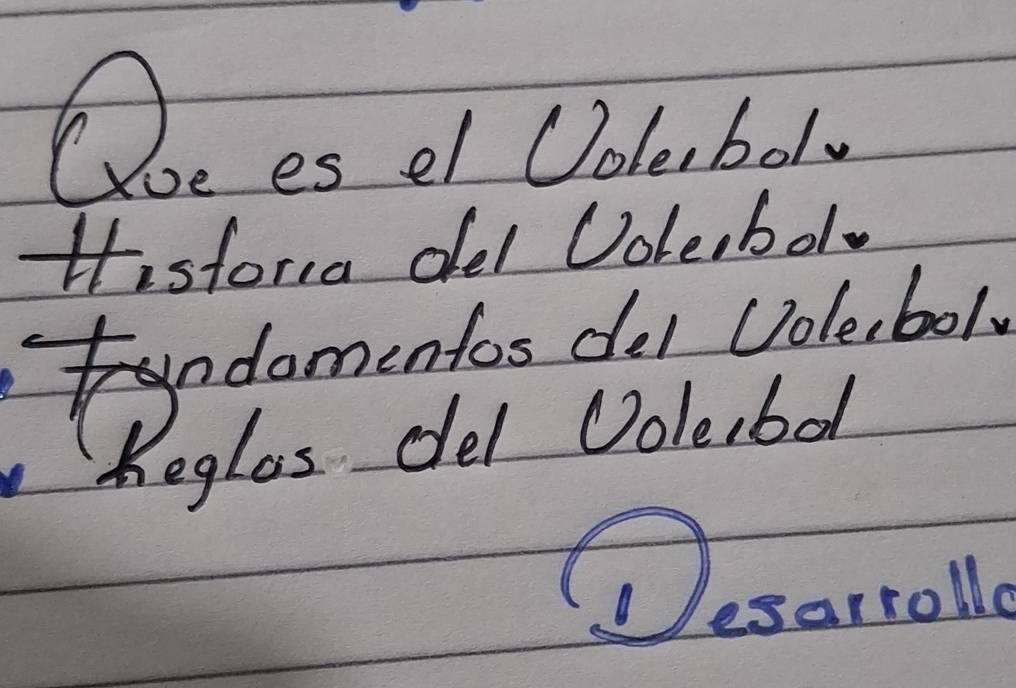 Que es el Voleibol.
Historia del Voleibol.
Fundamentos del Voleibol.
Reglas del Voleibol
Desarrollo